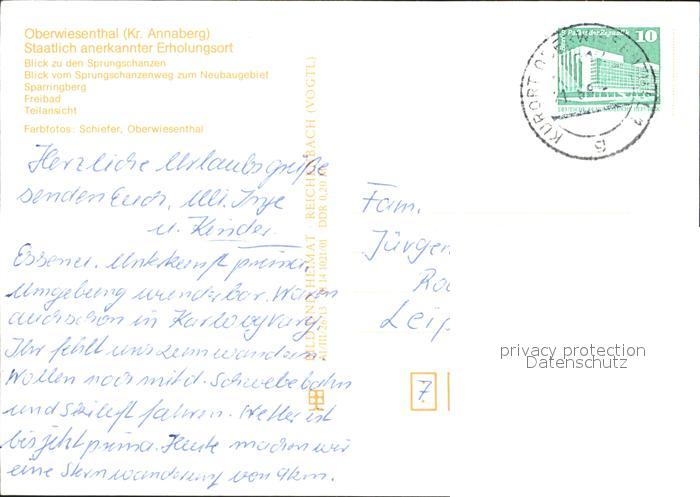 Oberwiesenthal (Kr. Annaberg)
Staatlich anerkannter Erholungsort
Blick zu den Sprungschanzen
Blick vom Sprungschanzenweg zum Neubaugebiet
Sparringberg
Freibad
Teilansicht
Farbfotos: Schiefer, Oberwiesenthal
Herzliche Urlaubsgrüße
senden Euch, Ulli, Inge
u. Kinder
Essen u. Unterkunft prima,
Umgebung wunderbar. Waren
auch schon in Karlovy Vary.
Ihr fehlt uns zum wandern.
Wollen noch mit d. Schwebebahn
und Skilift fahren. Wetter ist
bis jetzt prima. Heute machen wir
eine Sternwanderung von 9km.
BILD UND HEIMAT REICHENBACH (VOGTL)
DDR 0,20 M
Palast der Republik
10
KURORT OBERWIESENTHAL
B
Fam.
Jürgen
Leip
7
privacy protection
Datenschutz